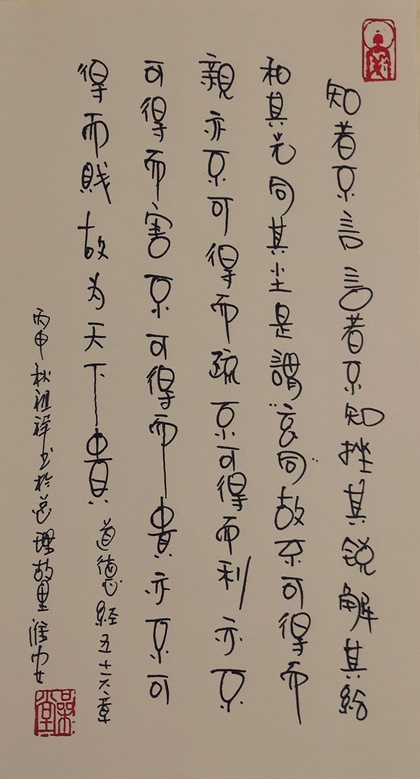 知者不言言者不知挫其锐解其紛
和其光同其尘是謂“玄同”故不可得而
親亦不可得而疏不可得而利亦不
可得而害不可得而貴亦不可
得而賤故为天下貴
道德經五十六章
丙申秋祖祥书於故里